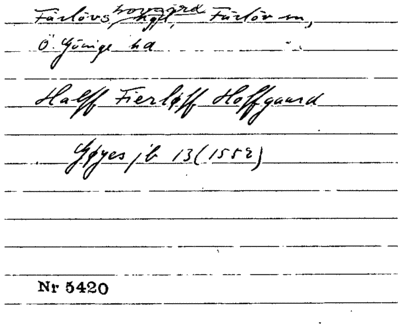 Färlövs hovgård
hgl, Färlöv sn,
Ö. Göinge hd
Halff Fierløff Hoffgaard
Gøyes jb 13 (1552)
Nr 5420